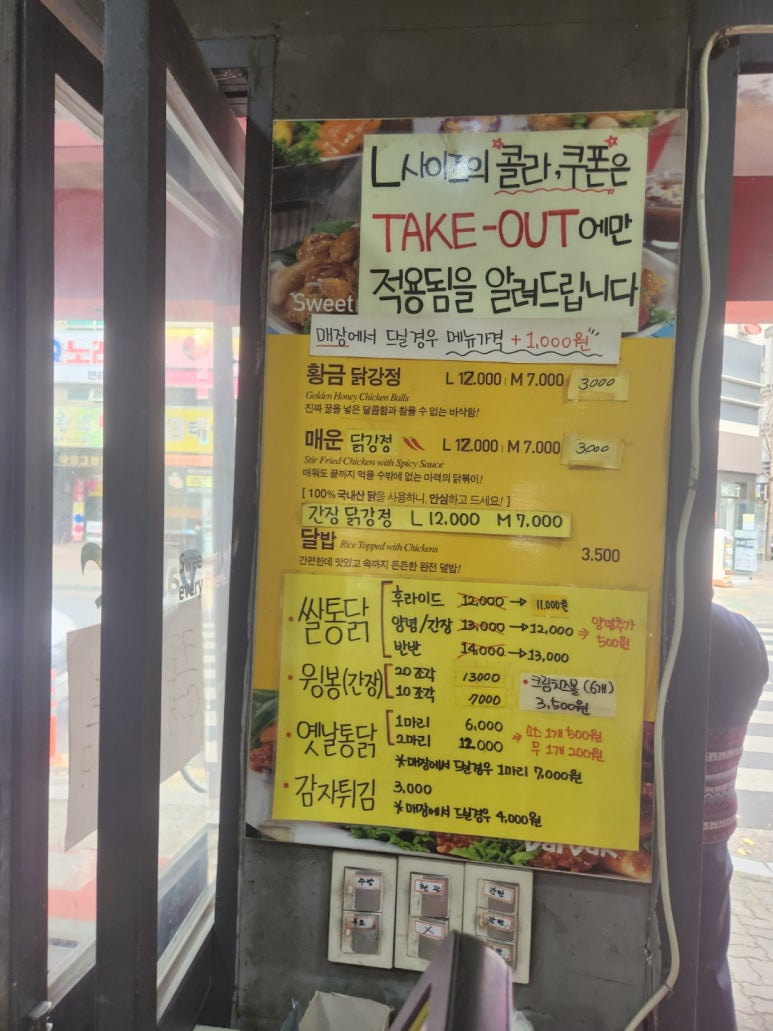 L사이즈의 콜라, 쿠폰은
TAKE-OUT에만
적용됨을 알려드립니다
Sweet
매장에서 드실경우 메뉴가격 +1,000원
황금 닭강정 L 12.000 M 7.000 3000
Golden Honey Chicken Balls
진짜 꿀을 넣은 달콤함과 참을 수 없는 바삭함!
매운 닭강정 L 12.000 M 7.000 3000
Stir Fried Chicken with Spicy Sauce
매워도 끝까지 먹을 수밖에 없는 마력의 닭볶이!
[ 100% 국내산 닭을 사용하니, 안심하고 드세요! ]
간장 닭강정 L 12.000 M 7.000
달밥 Rice Topped with Chickens 3.500
간편한데 맛있고 속까지 든든한 완전 덮밥!
·쌀통닭
후라이드 12,000 → 11.000원
양념/간장 13,000 → 12,000 ⇒ 양념추가 500원
반반 14,000 → 13,000
·윙봉(간장)
20조각 13000
10조각 7000
·크림치즈볼 (6개)
3,500원
·옛날통닭
1마리 6,000
2마리 12.000
⇒ 소스 1개 500원
무 1개 200원
※매장에서 드실경우 1마리 7,000원
·감자튀김 3,000
※매장에서 드실경우 4,000원
주방
현관
간판
간판
X